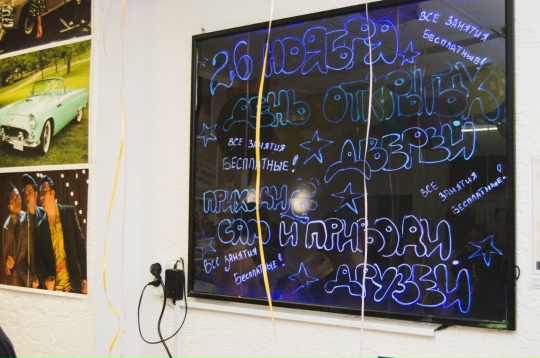 26 НОЯБРЯ
ВСЕ ЗАНЯТИЯ
БЕСПЛАТНЫЕ!
ДЕНЬ ОТКРЫТЫХ
ДВЕРЕЙ
ВСЕ ЗАНЯТИЯ
БЕСПЛАТНЫЕ!
ВСЕ ЗАНЯТИЯ
БЕСПЛАТНЫЕ!
ПРИХОДИ
САМ И ПРИВОДИ
ДРУЗЕЙ
ВСЕ ЗАНЯТИЯ
БЕСПЛАТНЫЕ!